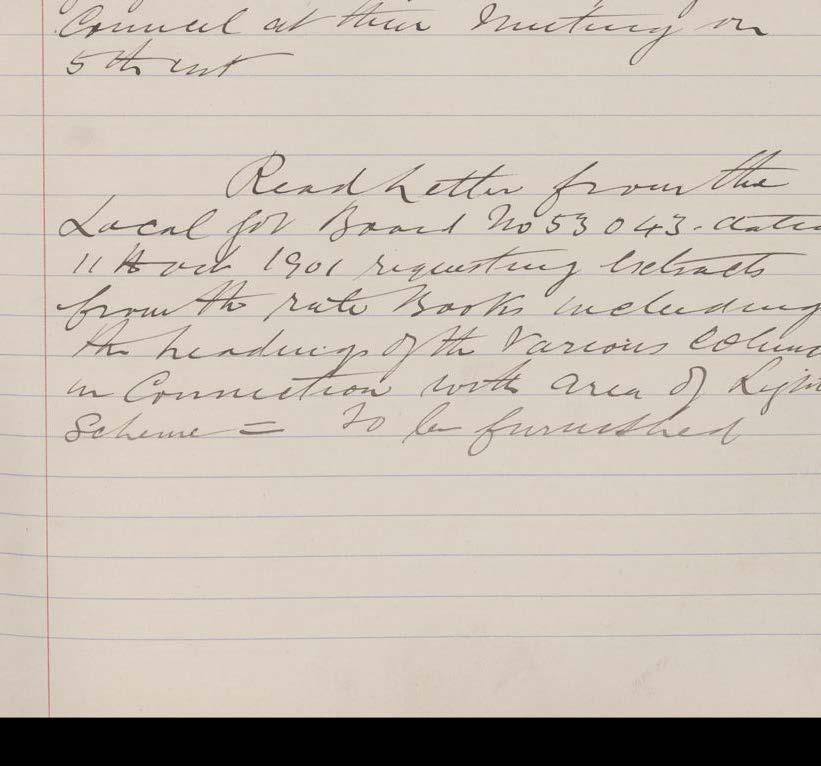 Council at their Meeting on
5th inst
Read Letter from the
Local Gov Board No 53043 - dated
11th Oct 1901 requesting Extracts
from the rate Books including
the headings of the Various Colum
in Connection with area of Light
Scheme = To be furnished